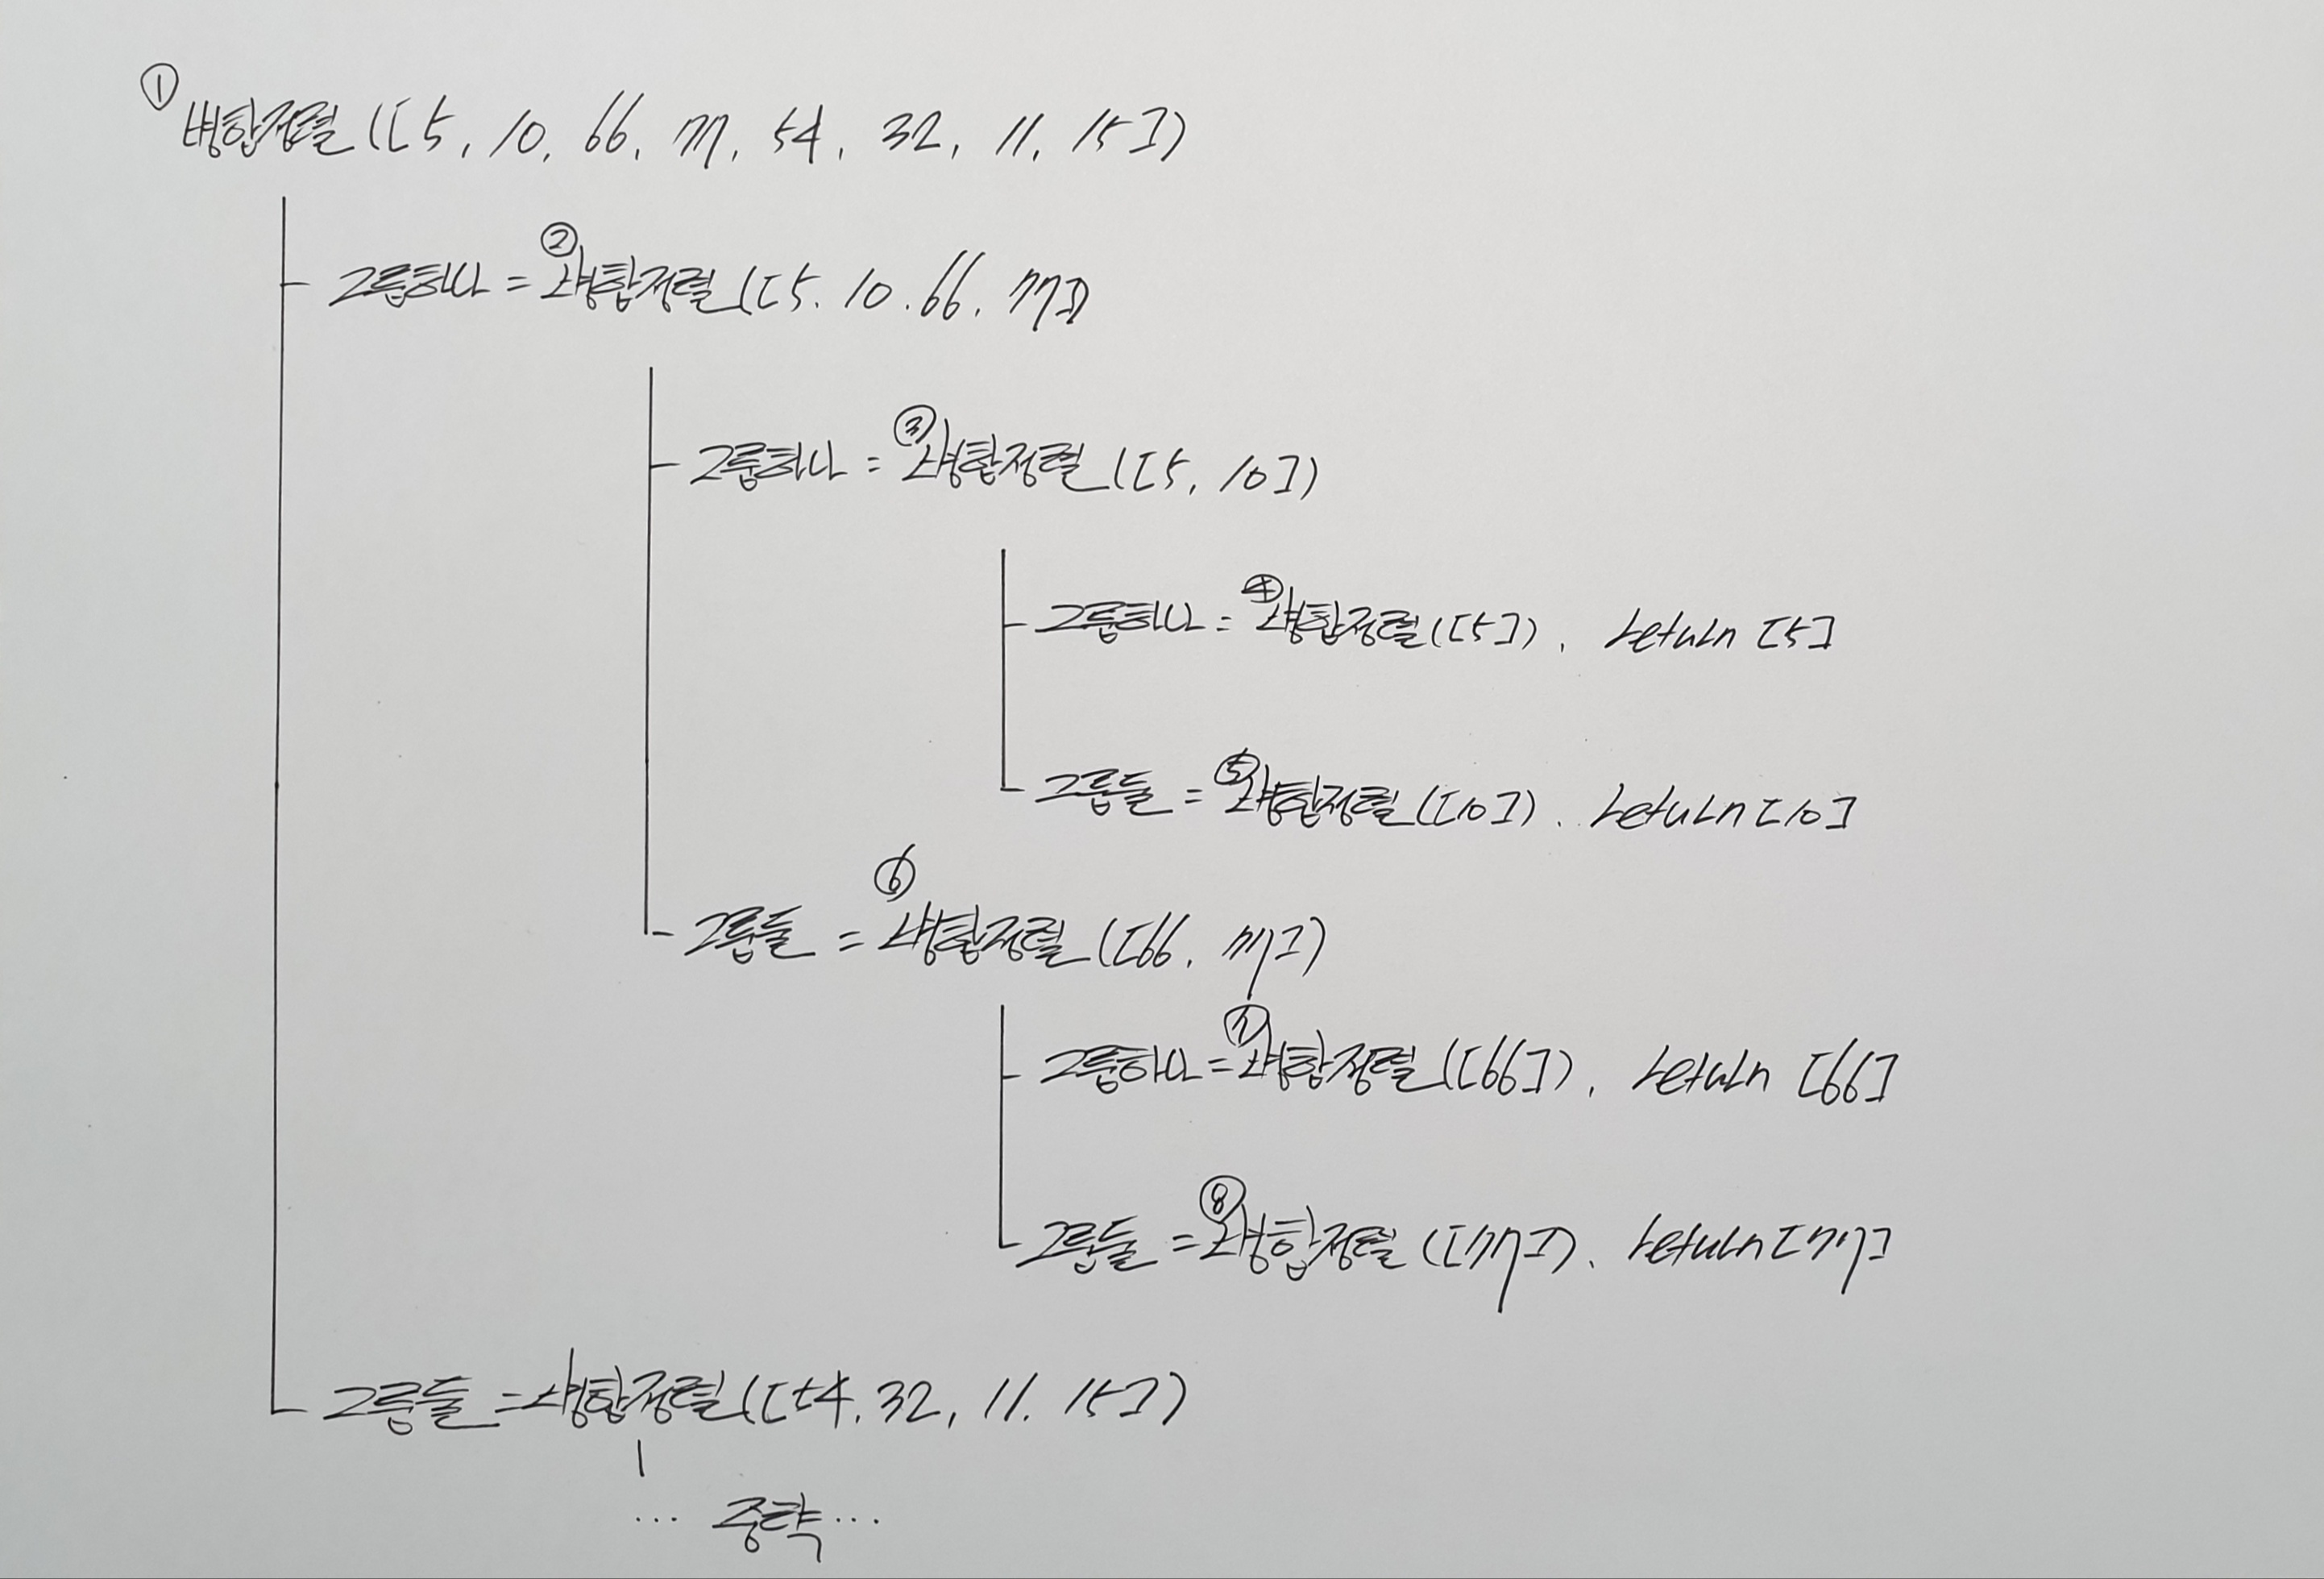 ① 병합정렬([5, 10, 66, 77, 54, 32, 11, 15])
그룹하나 = ② 병합정렬([5. 10. 66, 77])
그룹하나 = ③ 병합정렬([5, 10])
그룹하나 = ④ 병합정렬([5]), return [5]
그룹둘 = ⑤ 병합정렬([10]). return [10]
그룹둘 = ⑥ 병합정렬([66, 77])
그룹하나 = ⑦ 병합정렬([66]), return [66]
그룹둘 = ⑧ 병합정렬([77]). return [77]
그룹둘 = 병합정렬([54, 32, 11. 15])
... 중략 ...